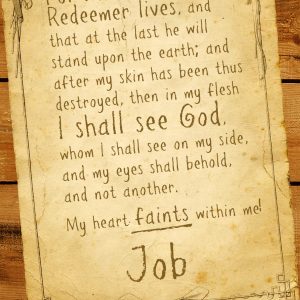 Redeemer lives, and
that at the last he will
stand upon the earth; and
after my skin has been thus
destroyed, then in my flesh
I shall see God,
whom I shall see on my side,
and my eyes shall behold,
and not another.
My heart faints within me!
Job